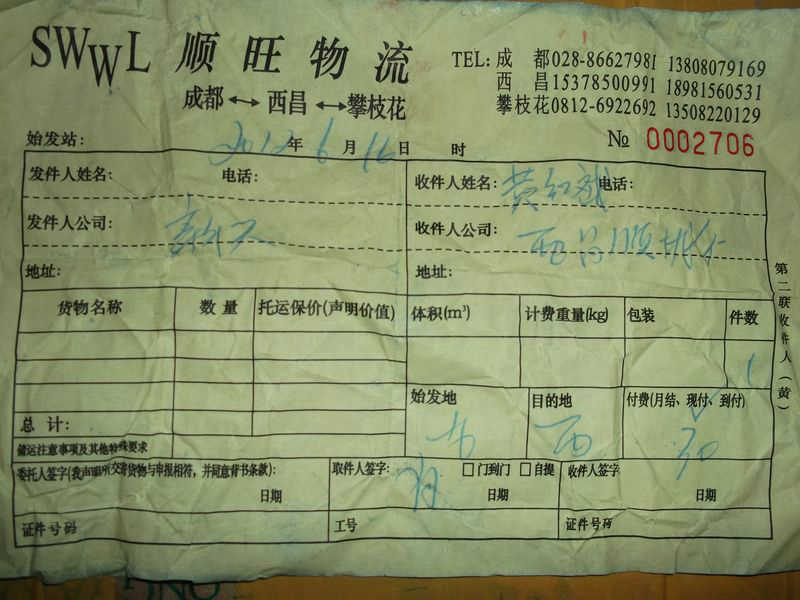 SWWL 顺旺物流
成都↔西昌↔攀枝花
TEL: 成 都028-86627981 13808079169
西 昌15378500991 18981560531
攀枝花0812-6922692 13508220129
始发站: 2012年6月16日 时
№ 0002706
发件人姓名: 电话:
收件人姓名: 黄 电话:
发件人公司:
收件人公司: 西昌顺城
地址:
地址:
货物名称 数 量 托运保价(声明价值) 体积(m³) 计费重量(kg) 包装 件数
1
总 计:
始发地 目的地 付费(月结、现付、到付)
西 30
储运注意事项及其他特殊要求
委托人签字(我声明所交寄货物与申报相符,并同意背书条款):
日期
取件人签字: □门到门 □自提
日期
收件人签字
日期
证件号码 工号 证件号码
第二联收件人(黄)